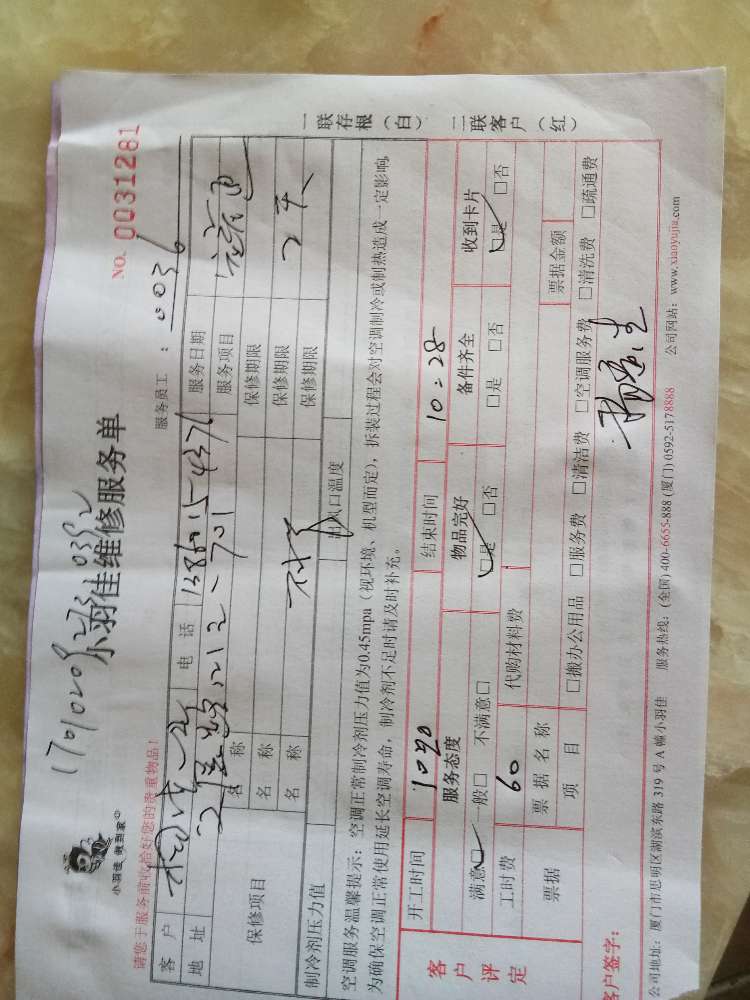 小羽佳 做到家
小羽佳维修服务单
NO. 0031281
请您于服务前收拾好您的贵重物品!
服务员工: 0036
客户
电话
服务日期
地址
服务项目
保修项目
名称
保修期限
名称
保修期限
名称
保修期限
2天
制冷剂压力值
出风口温度
空调服务温馨提示:空调正常制冷剂压力值为0.45mpa(视环境、机型而定),拆装过程会对空调制冷或制热造成一定影响,
为确保空调正常使用延长空调寿命,制冷剂不足时请及时补充。
一联存根(白) 二联客户(红)
客户评定
开工时间
结束时间 10:28
服务态度 物品完好 备件齐全 收到卡片
满意☑ 一般□ 不满意□ ☑是 □否 □是 □否 ☑是 □否
工时费 60 代购材料费
票据 票据名称 票据金额
项目 □搬办公用品 □服务费 □清洁费 □空调服务费 □清洗费 □疏通费
客户签字:
公司地址:厦门市思明区湖滨东路 319 号 A 幢小羽佳 服务热线:(全国) 400-6655-888 (厦门) 0592-5178888 公司网站:www.xiaoyujia.com